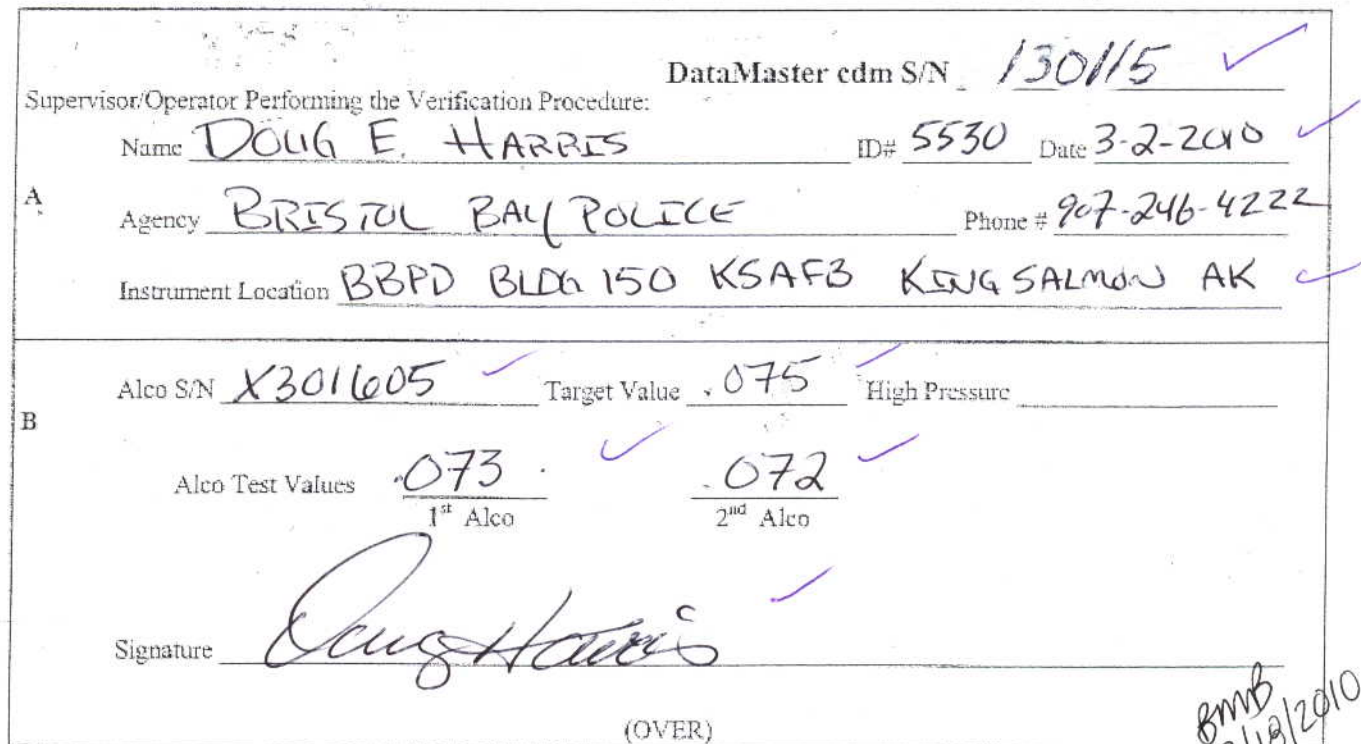 DataMaster cdm S/N 130115
Supervisor/Operator Performing the Verification Procedure:
Name DOUG E. HARRIS ID# 5530 Date 3-2-2010
A
Agency BRISTOL BAY POLICE Phone # 907-246-4222
Instrument Location BBPD BLDG 150 KSAFB KING SALMON AK
Alco S/N X301605 Target Value .075 High Pressure
B
Alco Test Values .073 .072
1st Alco 2nd Alco
Signature Doug Harris
(OVER)
BMB
/2010